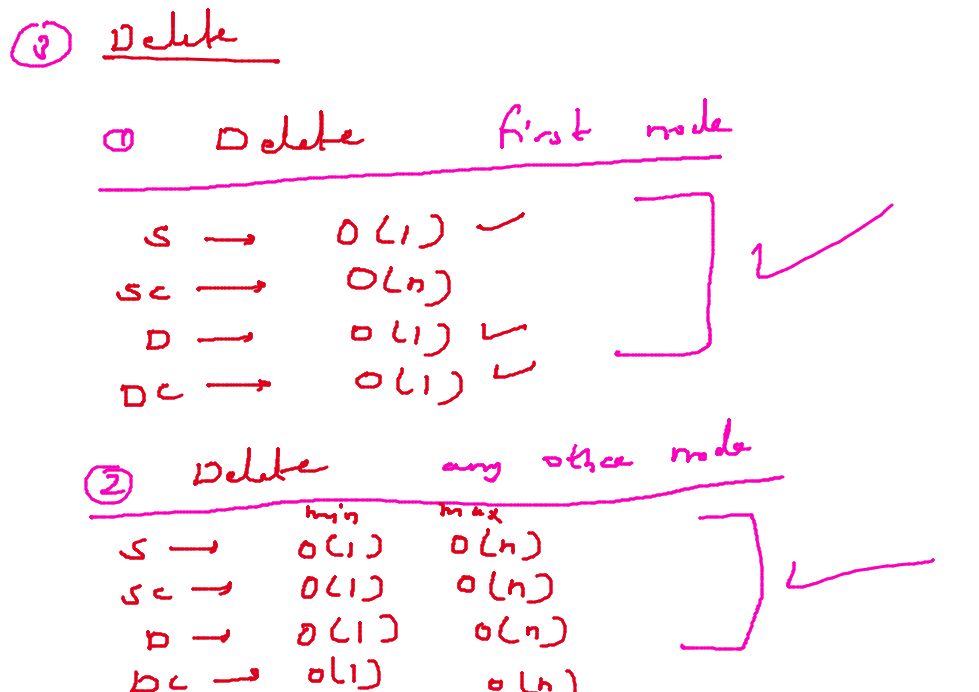 ③ Delete
① Delete first node
S → O(1) ✓
SC → O(n)
D → O(1) ✓
DC → O(1) ✓
② Delete any other node
min max
S → O(1) O(n)
SC → O(1) O(n)
D → O(1) O(n)
DC → O(1) O(n)